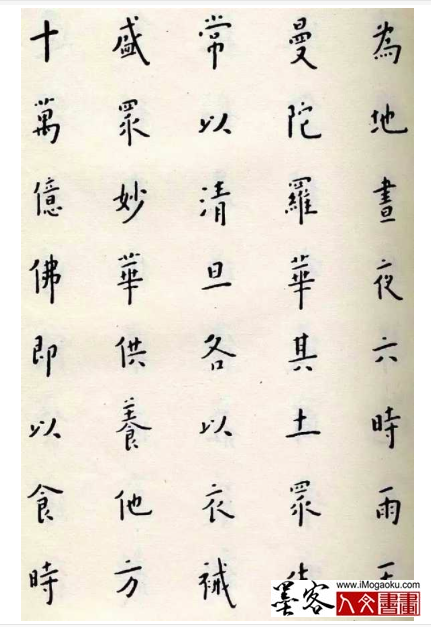 為地晝夜六時雨
曼陀羅華其土眾
常以清旦各以衣裓
盛眾妙華供養他方
十萬億佛即以食時
墨客
www.iMogaoku.com
人文書畫